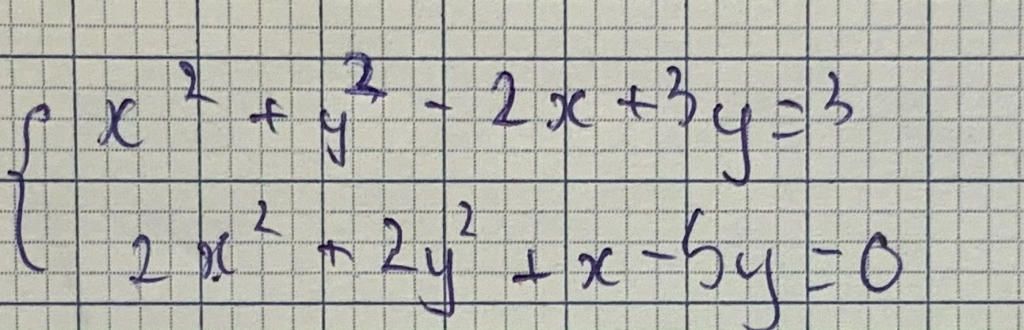 x² + y² - 2x + 3y = 3
2x² + 2y² + x - 5y = 0